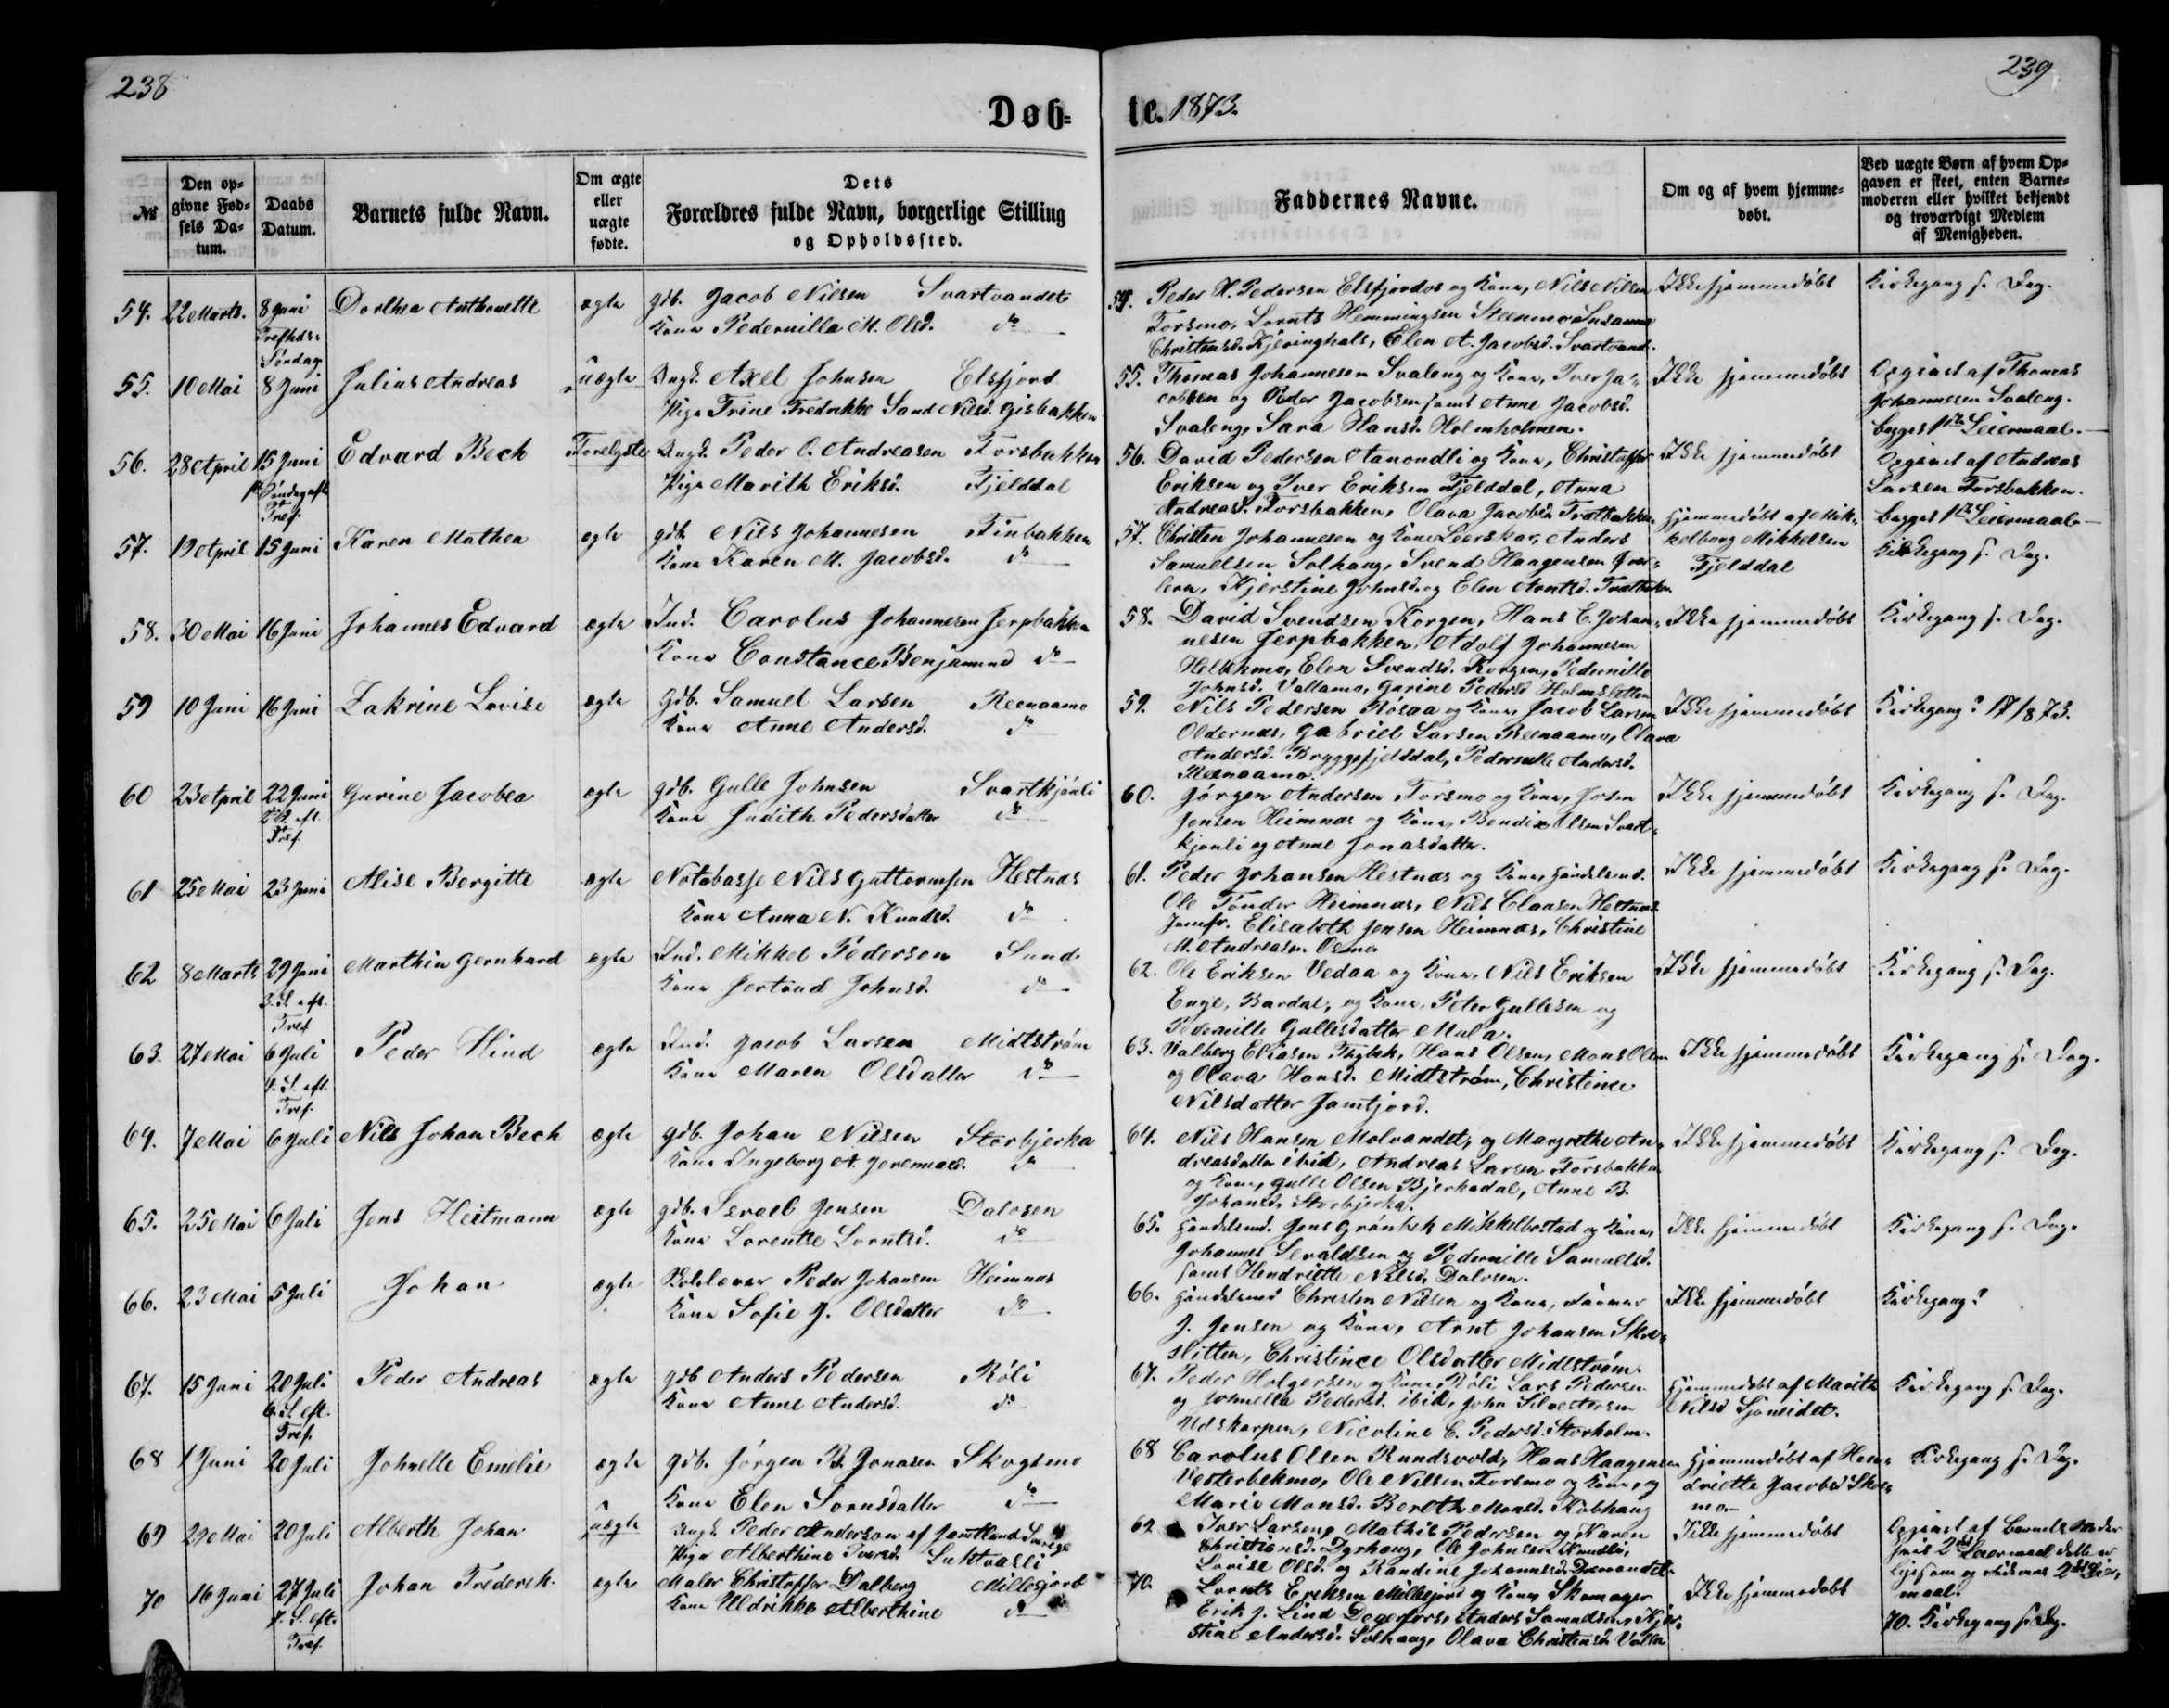 238
Døb=
№
Den op=
givne Fød=
sels Da=
tum.
Daabs
Datum.
Barnets fulde Navn.
Om ægte
eller
uægte
fødte.
Dets
Forældres fulde Navn, borgerlige Stilling
og Opholdssted.
54. 22 Marts. 8 Juni Dorthea Anthonette ægte gdb. Jacob Nilsen Svartvandet
Trefhds=
Søndag
Kone Pedernilla M. Olsd. do
55. 10 Mai 8 Juni Julius Andreas uægte Ungk. Axel Johnsen Elsfjord
Pige Trine Fredrikke Sand Nilsd. Gisbakken
56. 28 April 15 Juni Edvard Bech Ungk. Peder O. Andreasen Forsbakken
1ste Søndag eft.
Tref.
Pige Marith Eriksd. Fjelddal
57. 19 April 15 Juni Karen Mathea ægte gdb. Nils Johannesen Finbakken
Kone Karen M. Jacobsd. do
58. 30 Mai 16 Juni Johannes Edvard ægte Ind. Carolus Johannesen Jerpbakken
Kone Constance Benjamind do
59 10 Juni 16 Juni Zakrine Lovise ægte Gdb. Samuel Larsen Reenaamo
Kone Anne Andersd. do
60 23 April 22 Juni Gurine Jacobea ægte gdb. Gulle Johnsen Svartkjónli
2 S. eft.
Tref
Kone Judith Pedersdatter do
61 25 Mai 23 Juni Alise Bergitte ægte Notabasse Nils Guttormsen Hestnæs
Kone Anna N. Knudsd. do
62 8 Marts 29 Juni Marthin Gernhard ægte Ind. Mikkel Pedersen Sund
3. S. eft.
Tref
Kone Johnsd. do
63. 27 Mai 6 Juli Peder Hind ægte Ind. Jacob Larsen Midtstrøm
4. S. eft.
Tref.
Kone Maren Olsdatter do
64. 7 Mai 6 Juli Nils Johan Bech ægte gdb. Johan Nilsen Storbjerka
Kone Ingeborg A. Jeremiasd. do
65. 25 Mai 6 Juli Jens Heitmann ægte gdb. Israel Jensen Dalosen
Kone Lorentse Lorntsd. do
66. 23 Mai 5 Juli Johan ægte Peder Johansen Heimnæs
Kone Sofie J. Olsdatter do
67. 15 Juni 20 Juli Peder Andreas ægte gdb Anders Pedersen Róli
6. S. eft.
Tref.
Kone Anne Andersd. do
68 1 Juni 20 Juli Johnelle Emelie ægte gdb. Jørgen B. Jonasen Skogsmo
Kone Elen Sornsdatter do
69 29 Mai 20 Juli Alberth Johan uægte Ungk. Peder Anderson af Jamtland Sverige
Pige Alberthine Iversd. Luktvasli
70 16 Juni 27 Juli Johan Frederik ægte Maler Christoffer Dalberg Millesjord
7. S. eft.
Tref.
Kone Uldrikke Alberthine do
239
te. 1873.
Faddernes Navne.
Om og af hvem hjemme=
døbt.
Ved uægte Børn af hvem Op=
gaven er skeet, enten Barne=
moderen eller hvilket bekjendt
og troværdigt Medlem
af Menigheden.
54. Peder H. Pedersen Elsfjordos og Kone, Nils Nilsen Ikke hjemmedøbt Kirkegang s. Dag.
Forsmo, Lornts Hemmingsen Steenmo, Susanna
Christensd. Kjeringhals, Elen A. Jacobsd. Svartvand.
55. Thomas Johannesen Svaleng og Kone, Iver Ja= Ikke hjemmedøbt Opgivet af Thomas
cobsen og Peder Jacobsen samt Anne Jacobsd. Johannesen Svaleng.
Svaleng, Sara Hansd. Holmholmen. begges 1ste Leiermaal.
56. David Pedersen Aanondli og Kone, Christoffer Ikke hjemmedøbt Opgivet af Andreas
Eriksen og Iver Eriksen Fjelddal, Anna Larsen Forsbakken.
Andreasd. Forsbakken, Olava Jacobsd. begges 1ste Leiermaal
57. Christen Johannesen og Kone Leerskar, Anders Hjemmedøbt af Mik=
kelborg Mikkelsen
Fjelddal Kirkegang s. Dag.
Samuelsen Solhaug, Svend Haagensen
Kjerstine Johnsd. og Elen Arntsd.
58. David Svendsen Korgen, Hans E. Johan= Ikke hjemmedøbt Kirkegang s. Dag.
nesen Jerpbakken, Adolf Johannesen
Elen Svendsd. Korgen, Pedernille
Johnsd. Vallamo, Gurine Pedersd Holmsletten
59. Nils Pedersen Rósaa og Kone, Jacob Larsen Ikke hjemmedøbt Kirkegang? 17/8 73.
Oldernæs, Gabriel Larsen Reenaamo, Olava
Andersd. Bryggfjelddal, Pedernille Andersd.
Reenaamo.
60. Jørgen Andersen Forsmo og Kone, Ikke hjemmedøbt Kirkegang s. Dag.
Jensen Heimnæs og Kone, Bendix Olsen Svart=
kjønli og Anne Jonasdatter.
61. Peder Johansen Hestnæs og Kone, Handelsmd. Ikke hjemmedøbt Kirkegang s. Dag.
Ole Tønder Heimnæs, Nils Claasen Hestnæs
Jomfr. Elisabeth Jensen Heimnæs, Christine
M. Andreasen Osmo
62. Ole Eriksen Vedaa og Kone, Nils Eriksen Ikke hjemmedøbt Kirkegang s. Dag.
Enge, Bardal, og Kone, Peter Gullesen og
Pedernille Gullesdatter Mula.
63. Valberg Eliasen Hans Olsen, Mons Olsen Ikke hjemmedøbt Kirkegang s. Dag.
og Olava Hansd. Midtstrøm, Christine
Nilsdatter Jamtjord.
64. Nils Hansen Molvandet, og Margrethe An= Ikke hjemmedøbt Kirkegang s. Dag.
dreasdatter ibid, Andreas Larsen Forsbakken
og Kone, Gulle Olsen Bjerkadal, Anne B.
Johansd. Storbjerka.
65. Handelsmd. Jens Mikkelbostad og Kone, Ikke hjemmedøbt Kirkegang s. Dag.
Johannes og Pedernille Samuelsd.
samt Hendriette Nilsd. Dalosen.
66. Handelsmd Christen Nilsen og Kone, Ikke hjemmedøbt Kirkegang?
J. Jensen og Kone, Arnt Johansen Skra=
slitten, Christince Olsdatter Midtstrøm.
67. Peder Holgersen og Kone Róli Lars Pedersen Hjemmedøbt af Marith Kirkegang s. Dag.
og Johnella Pedersd. ibid, John Silvestersen Nilsd Sjoneidet.
Udskarpen, Nicoline C. Pedersd. Storholm.
68 Carolus Olsen Rundsvold, Hans Haagensen Hjemmedøbt af Hen=
driette Jacobsd
mo. Kirkegang s. Dag.
Ole Nilsen Forsmo og Kone, og
Marie Monsd. Bereth Monsd. Kobhaug
69 Iver Larsen, Mathis Pedersen og Karen Ikke hjemmedøbt Opgivet af Barnets Moder
Christensd. Dyrhaug, Ole Johnsen 2det Leiermaal
Lovise Olsd. og Randine Johannesd.
maal.
70. Lornts Eriksen Millesjord og Kone, Skomager Ikke hjemmedøbt
Erik J. Lind Degerfors, Anders Samuelsen, Kjer=
stine Andersd. Solhaug, Olava Christensd. Valla
70. Kirkegang s. Dag.